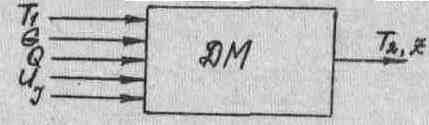 T₁
G
Q
U
y
ДМ
T₂, Z